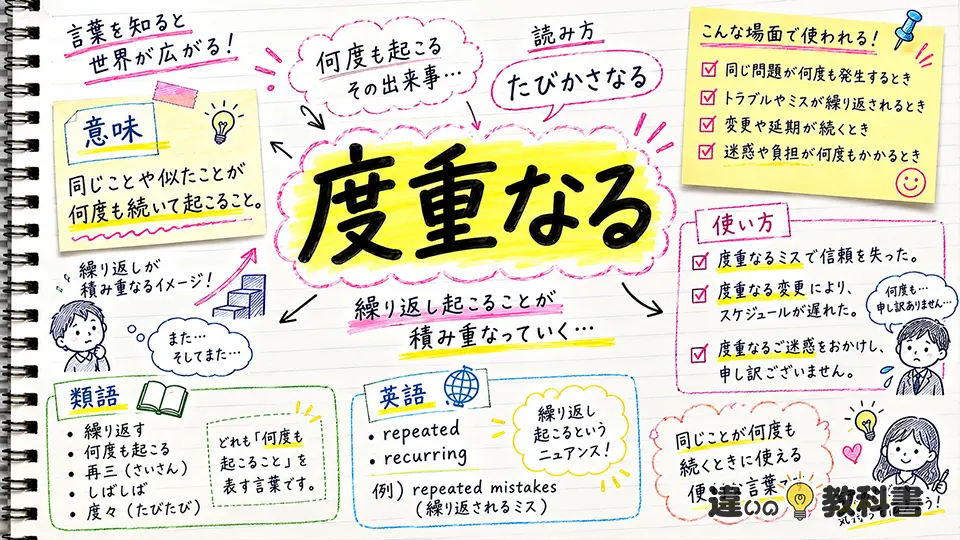 言葉を知ると
世界が広がる！
何度も起こる
その出来事…
読み方
たびかさなる
こんな場面で使われる！
同じ問題が何度も発生するとき
トラブルやミスが繰り返されるとき
変更や延期が続くとき
迷惑や負担が何度もかかるとき
意味
同じことや似たことが
何度も続いて起こること。
度重なる
繰り返しが
積み重なるイメージ！
また…
そしてまた…
繰り返し起こることが
積み重なっていく…
使い方
度重なるミスで信頼を失った。
度重なる変更により、
スケジュールが遅れた。
度重なるご迷惑をおかけし、
申し訳ございません。
何度も…
申し訳ありません…
類語
• 繰り返す
• 何度も起こる
• 再三（さいさん）
• しばしば
• 度々（たびたび）
どれも「何度も
起こること」を
表す言葉です。
英語
• repeated
• recurring
例）repeated mistakes
（繰り返されるミス）
繰り返し
起こるという
ニュアンス！
同じことが何度も
続くときに使える
言葉
違いの教科書